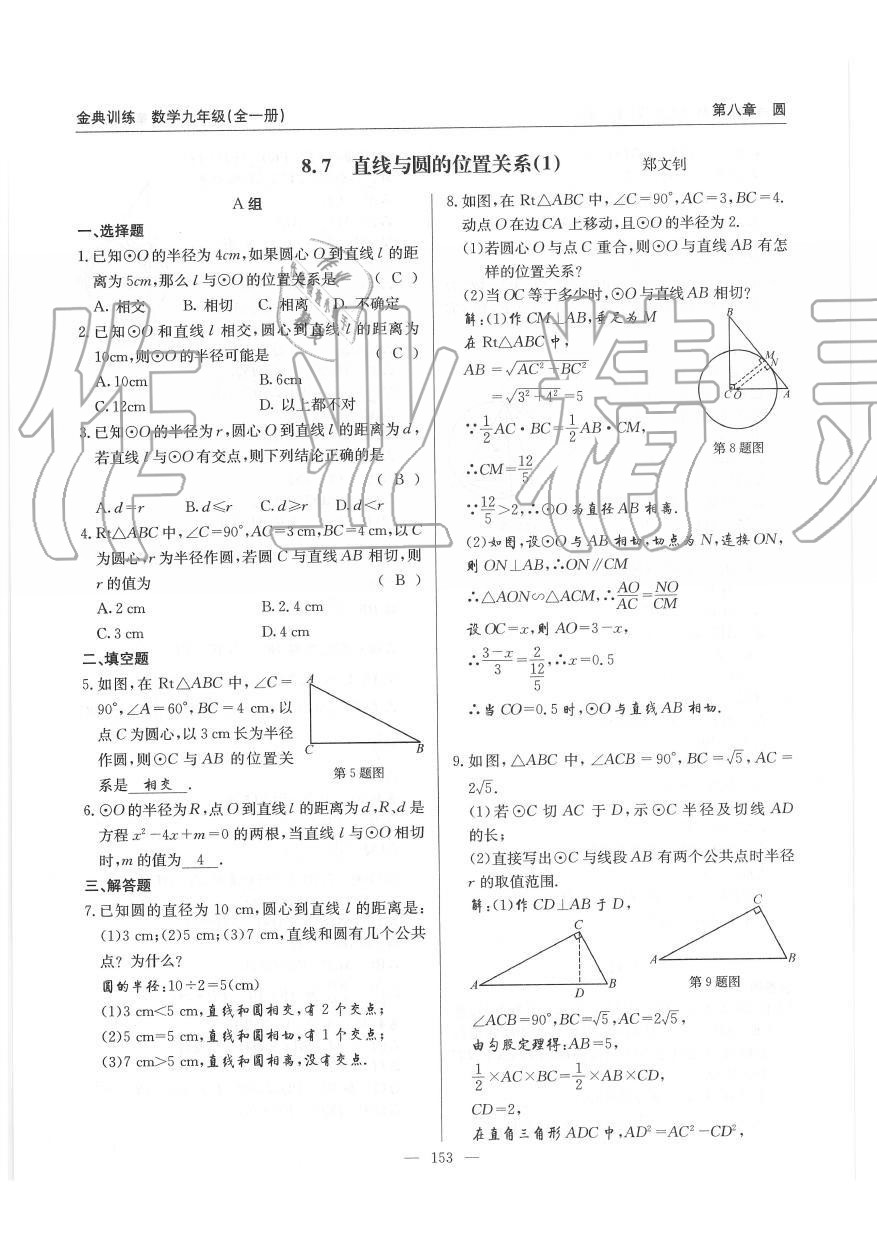 金典训练 数学九年级(全一册)
第八章 圆
8.7 直线与圆的位置关系(1) 郑文钊
A组
一、选择题
1.已知⊙O的半径为4cm,如果圆心O到直线l的距
离为5cm,那么l与⊙O的位置关系是 ( C )
A.相交 B.相切 C.相离 D.不确定
2.已知⊙O和直线l相交,圆心到直线l的距离为
10cm,则⊙O的半径可能是 ( C )
A.10cm B.6cm
C.12cm D.以上都不对
3.已知⊙O的半径为r,圆心O到直线l的距离为d,
若直线l与⊙O有交点,则下列结论正确的是
( B )
A.d=r B.d≤r C.d≥r D.d<r
4.Rt△ABC中,∠C=90°,AC=3cm,BC=4cm,以C
为圆心,r为半径作圆,若圆C与直线AB相切,则
r的值为 ( B )
A.2 cm B.2.4 cm
C.3 cm D.4 cm
二、填空题
5.如图,在Rt△ABC中,∠C=
90°,∠A=60°,BC=4 cm,以
点C为圆心,以3 cm长为半径
作圆,则⊙C与AB的位置关
系是 相交 .
A
C B
第5题图
6.⊙O的半径为R,点O到直线l的距离为d,R、d是
方程x²-4x+m=0的两根,当直线l与⊙O相切
时,m的值为 4 .
三、解答题
7.已知圆的直径为10 cm,圆心到直线l的距离是:
(1)3 cm;(2)5 cm;(3)7 cm,直线和圆有几个公共
点?为什么?
圆的半径:10÷2=5(cm)
(1)3 cm<5 cm,直线和圆相交,有2个交点;
(2)5 cm=5 cm,直线和圆相切,有1个交点;
(3)7 cm>5 cm,直线和圆相离,没有交点.
8.如图,在Rt△ABC中,∠C=90°,AC=3,BC=4.
动点O在边CA上移动,且⊙O的半径为2.
(1)若圆心O与点C重合,则⊙O与直线AB有怎
样的位置关系?
(2)当OC等于多少时,⊙O与直线AB相切?
解:(1)作CM⊥AB,垂足为M
在Rt△ABC中,
AB=√AC²+BC²
=√3²+4²=5
∵1/2AC·BC=1/2AB·CM,
∴CM=12/5
∵12/5>2,∴⊙O为直径AB相离.
B
M
N
C O A
第8题图
(2)如图,设⊙O与AB相切,切点为N,连接ON,
则ON⊥AB,∴ON∥CM
∴△AON∽△ACM,∴AO/AC=NO/CM
设OC=x,则AO=3-x,
∴3-x/3=2/12/5,∴x=0.5
∴当CO=0.5时,⊙O与直线AB相切.
9.如图,△ABC中,∠ACB=90°,BC=√5,AC=
2√5.
(1)若⊙C切AC于D,示⊙C半径及切线AD
的长;
(2)直接写出⊙C与线段AB有两个公共点时半径
r的取值范围.
解:(1)作CD⊥AB于D,
C
A D B
C
A B
第9题图
∠ACB=90°,BC=√5,AC=2√5,
由勾股定理得:AB=5,
1/2×AC×BC=1/2×AB×CD,
CD=2,
在直角三角形ADC中,AD²=AC²-CD²,
— 153 —
作业精灵